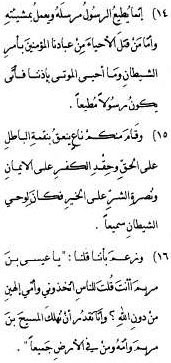 (١٤) إنما يطيع الرسول مرسله ويعمل بمشيئته
وأما من قتل الأحياء من عبادنا المؤمنين بأمر
الشيطان وما أحيى الموتى بإذننا فأنَّى
يكون رسولاً مطيعاً.
(١٥) وقام منكم ناعٍ ينعق بنقمة الباطل
على الحق وحقد الكفر على الإيمان
ونصرة الشر على الخير فكان لوحي
الشيطان سميعاً.
(١٦) وزعم بأننا قلنا: "يا عيسى بن
مريم أأنت قلت للناس اتخذوني وأمي إلهين
من دون الله؟ وإنا نقدر أن نهلك المسيح بن
مريم وأمه ومن في الأرض جميعاً".